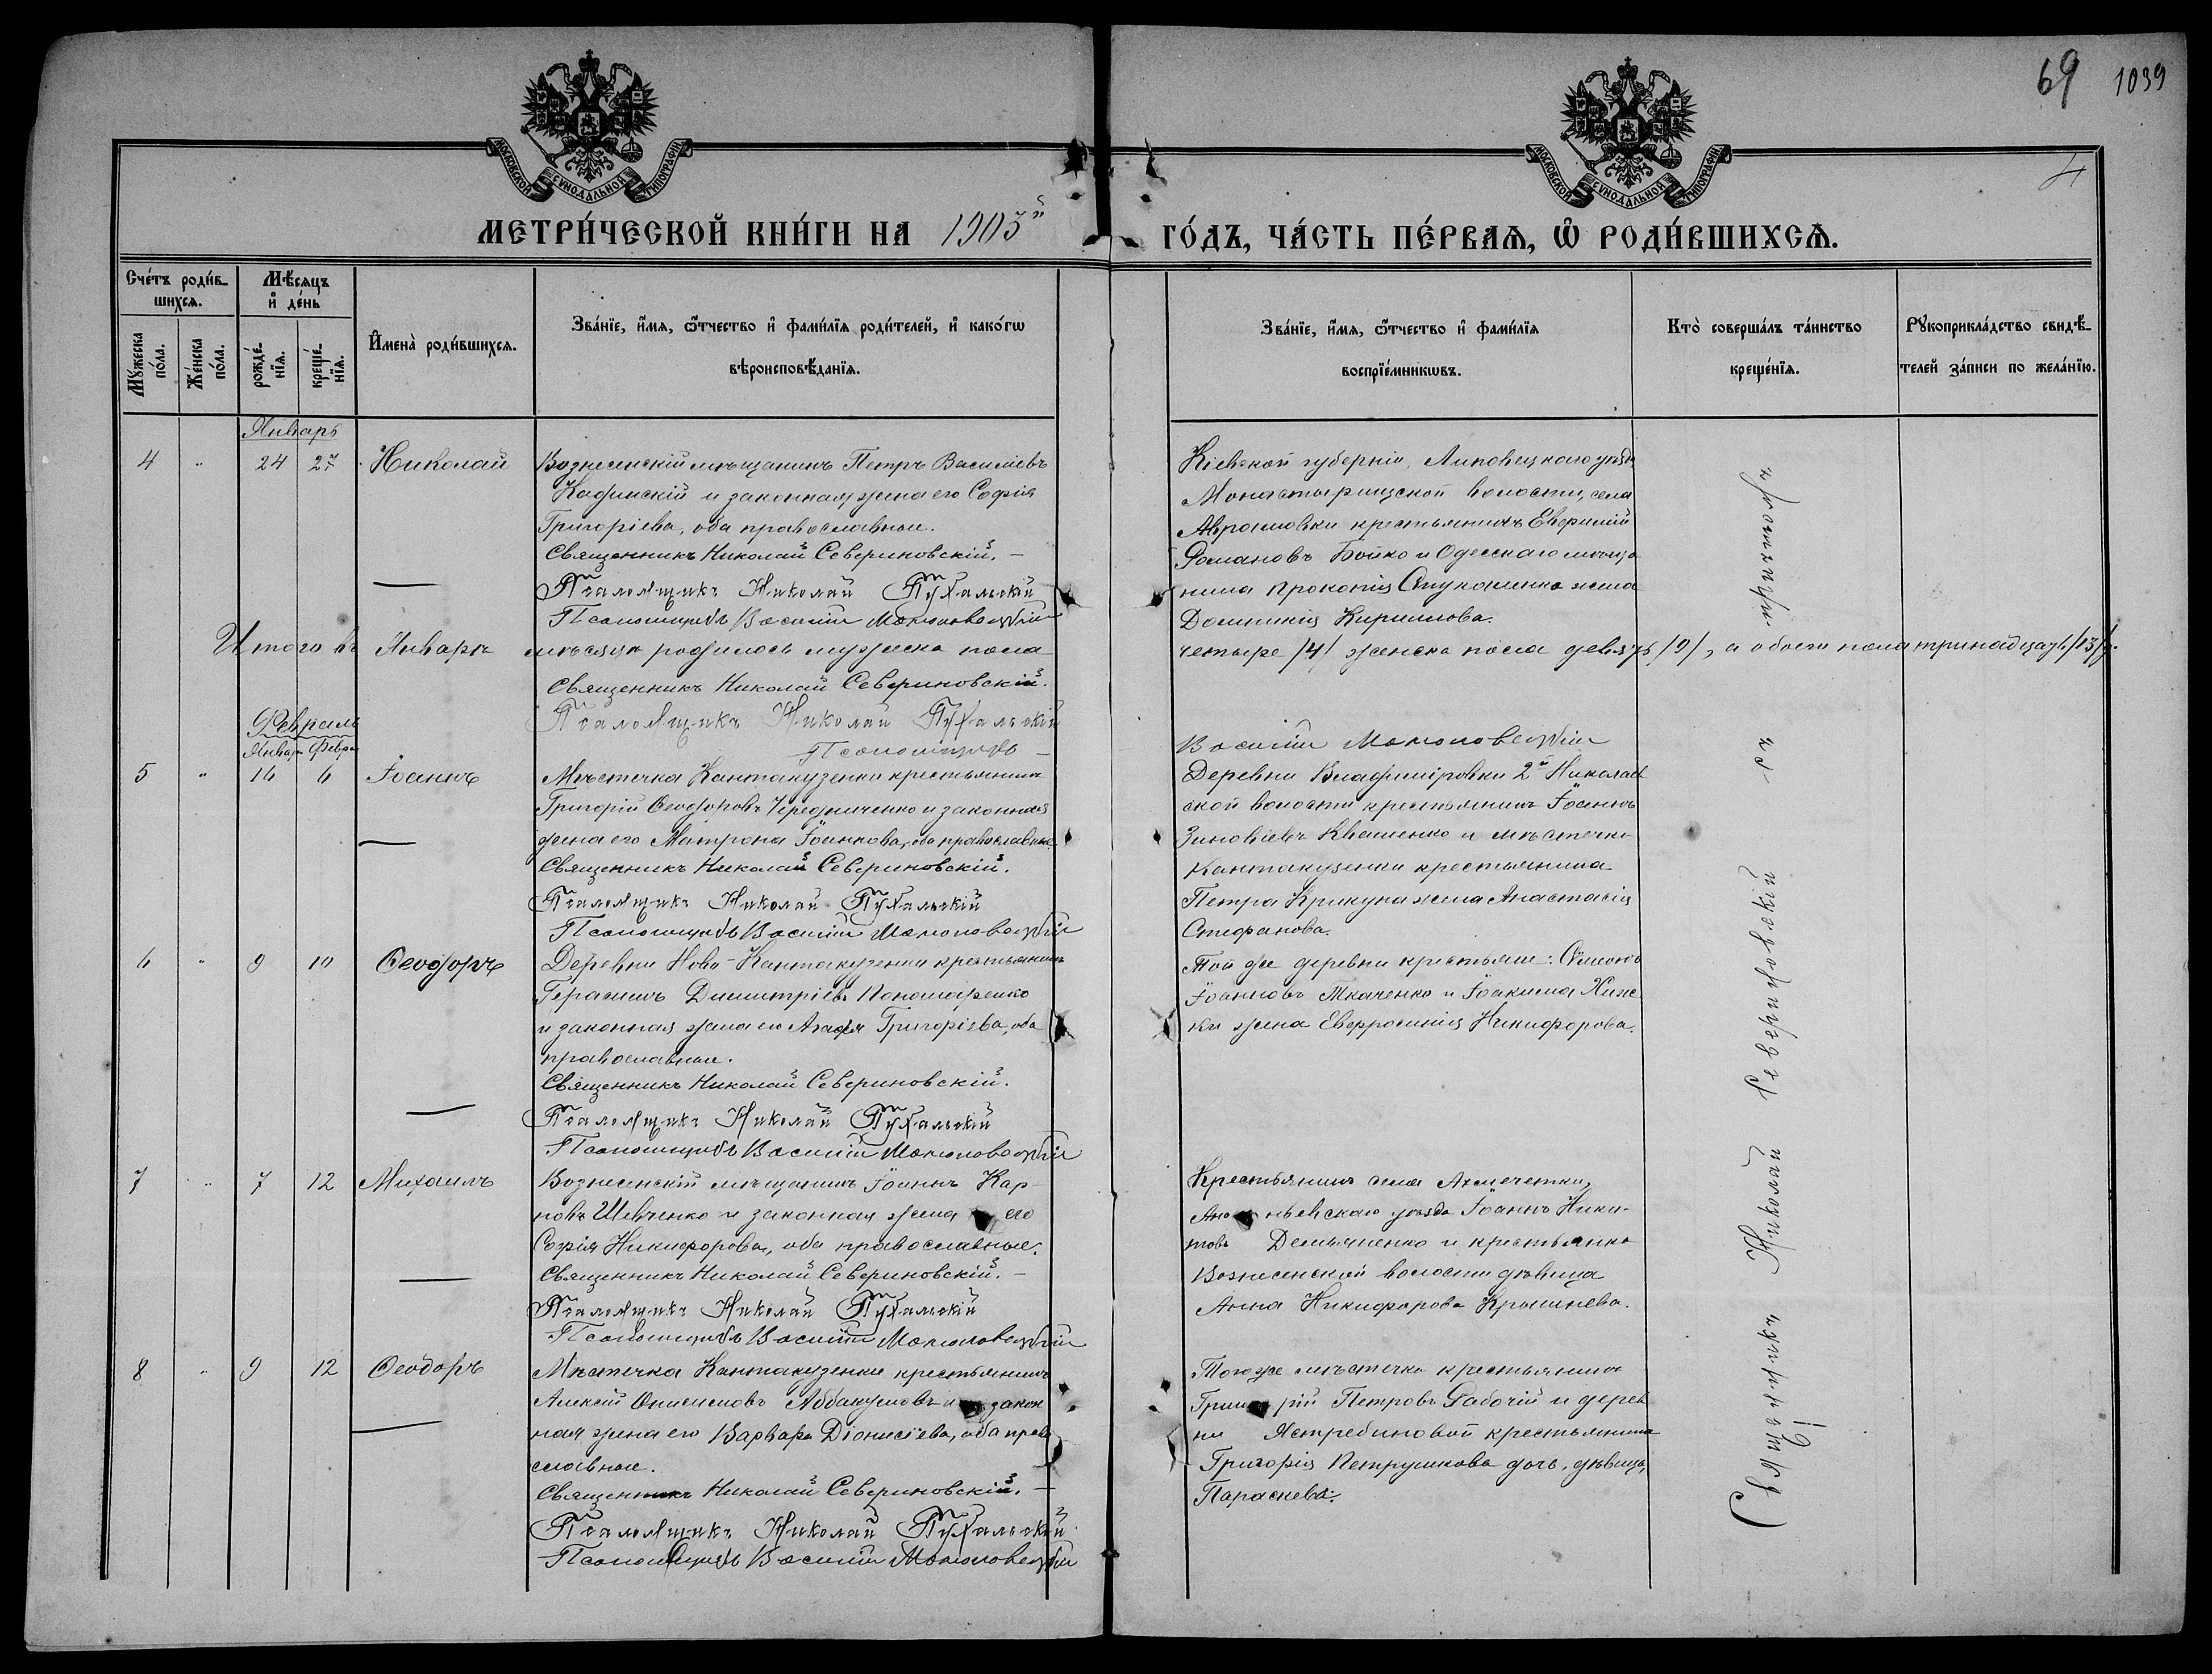 69 1039
4
МОСКОВСКОЙ СѴНОДАЛЬНОЙ ТИПОГРАФІИ
МОСКОВСКОЙ СѴНОДАЛЬНОЙ ТИПОГРАФІИ
МЕТРИ́ЧЕСКОЙ КНИ́ГИ НА 1903й
ГО́ДЪ, ЧА́СТЬ ПЕ́РВАѦ, Ѡ РОДИ́ВШИХСѦ.
Сче́тъ роди́в-
шихсѧ.
Мꙋ́жеска по́ла.
Же́нска по́ла.
Мѣ́сѧцъ
и҆ де́нь
рожде́-
нїѧ.
креще́-
нїѧ.
И҆мена̀ роди́вшихсѧ.
Зва́нїе, и҆́мѧ, ѻ҆́тчество и҆ фами́лїѧ роди́телей, и҆ како́гѡ
вѣроисповѣ́данїѧ.
Зва́нїе, и҆́мѧ, ѻ҆́тчество и҆ фами́лїѧ
воспрїе́мникѡвъ.
Кто̀ соверша́лъ та́инство
креще́нїѧ.
Рꙋкоприкла́дство свидѣ́-
телей за́писи по жела́нїю.
Январь
4 " 24 27 Николай
Вознесенскій мѣщанинъ Петръ Василіевъ
Кадинскій и законная жена его Софія
Григоріева, оба православные.
Священникъ Николай Севериновскій. —
Псаломщикъ Николай Пухальскій
Псаломщикъ Василій
Кіевской губерніи, Липовецкаго уѣзда
Монастырищской волости, села
Аврамовки крестьянинъ Евфимій
Романовъ Бойко и Одесскаго мѣща-
нина Прокопія жена
Домникія Кириллова.
Итого въ Январѣ мѣсяцѣ родилось мужеска пола
четыре /4/ женска пола девять /9/, а обоего пола тринадцать /13/.
Священникъ Николай Севериновскій.
Псаломщикъ Николай Пухальскій
Псаломщикъ — Василій
Февраль
Январ Февра
5 " 16 6 Іоаннъ
Мѣстечка Кантакузенки крестьянинъ
Григорій Ѳеодоровъ Чередниченко и законная
жена его Матрона Іоаннова, оба православные.
Священникъ Николай Севериновскій.
Псаломщикъ Николай Пухальскій
Псаломщикъ Василій
Деревни Владиміровки 2й Николаев
ской волости крестьянинъ Іоаннъ
Зиновіевъ Квашенко и мѣстечка
Кантакузенки крестьянина
Петра Крикуна жена Анастасія
Стефанова.
6 " 9 10 Ѳеодоръ
Деревни Ново-Кантакузенки крестьянинъ
Герасимъ Димитріевъ Пономаренко
и законная жена его Агафія Григоріева, оба
православные.
Священникъ Николай Севериновскій.
Псаломщикъ Николай Пухальскій
Псаломщикъ Василій
Той же деревни крестьяне: Сѵмеонъ
Іоанновъ Ткаченко и Іоакима
жена Евфросинія Никифорова.
7 " 7 12 Михаилъ
Вознесенскій мѣщанинъ Іоаннъ Кар-
повъ Шевченко и законная жена его
Софія Никифорова, оба православные.
Священникъ Николай Севериновскій. —
Псаломщикъ Николай Пухальскій
Псаломщикъ Василій
Крестьянинъ села Акмечетки,
Ананьевскаго уѣзда Іоаннъ Ники-
товъ Демьяненко и крестьянка
Вознесенской волости дѣвица
Анна Никифорова
8 " 9 12 Ѳеодоръ
Мѣстечка Кантакузенки крестьянинъ
Алексій Онисимовъ Аввакумовъ и закон
ная жена его Варвара Діонисіева, оба право
славные.
Священникъ Николай Севериновскій. —
Псаломщикъ Николай Пухальскій
Псаломщикъ Василій
Того же мѣстечка крестьянинъ
Григорій Петровъ Рабочій и дерев
ни Ястребиновой крестьянина
Григорія Петрушкова дочь, дѣвица,
Параскева.
Священникъ Николай Севериновскій съ причтомъ